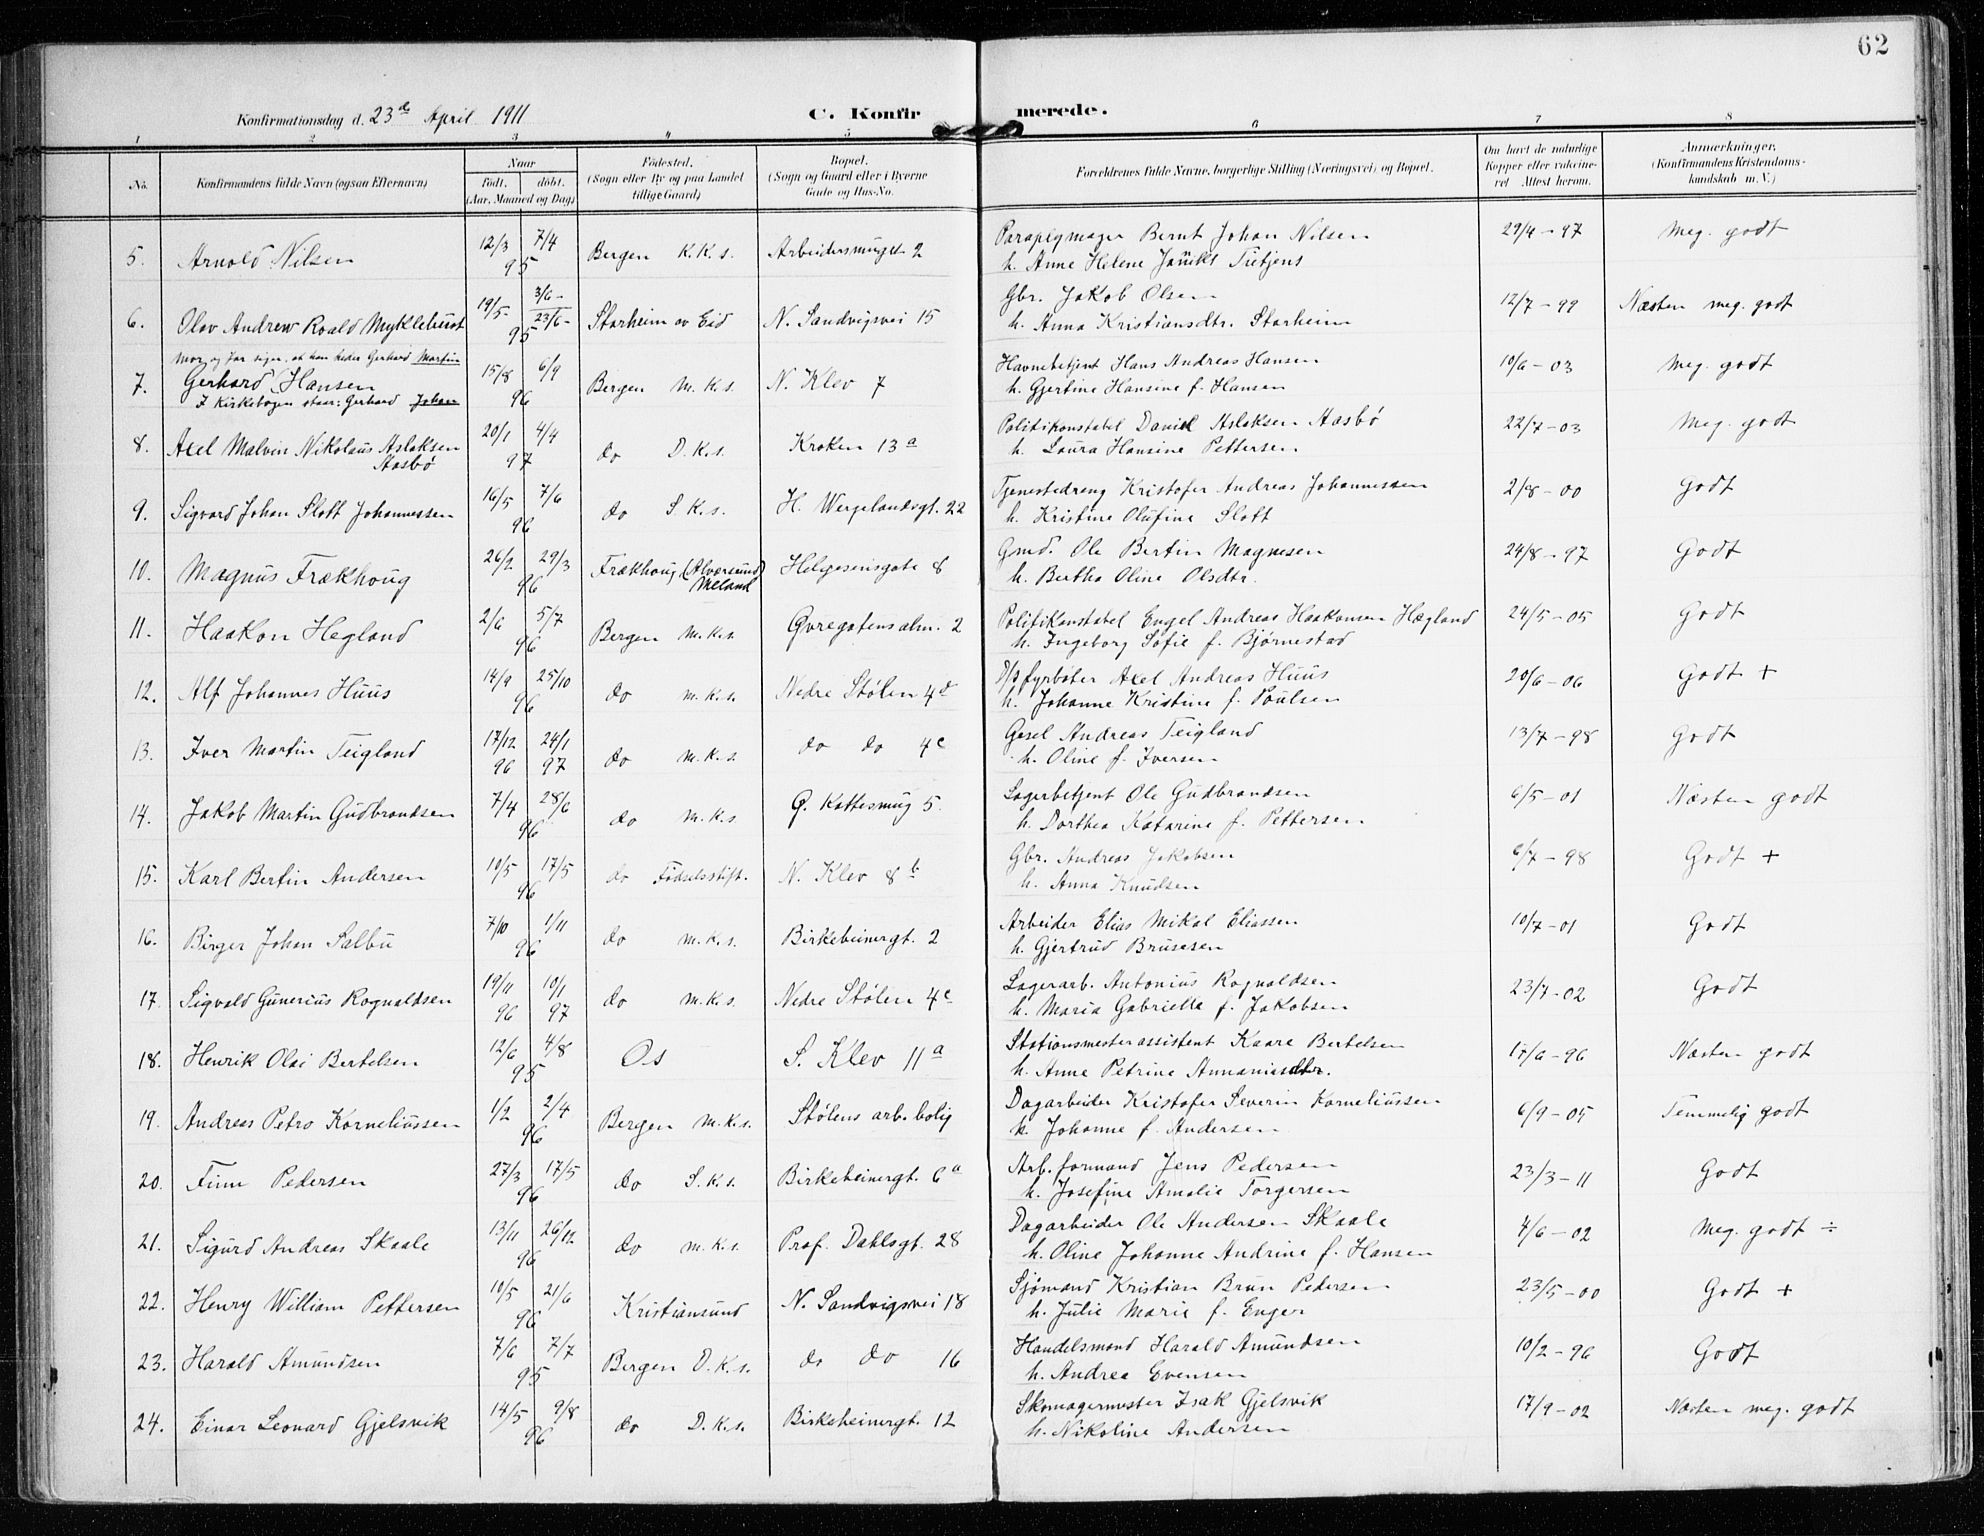 62
Konfirmationsdag d. 23de April 1911 C. Konfirmerede.
1 2 3 4 5 6 7 8
No. Konfirmandens fulde Navn (ogsaa Efternavn) Naar Født, døbt. (Aar, Maaned og Dag) Fødested. (Sogn eller By og paa Landet tillige Gaard) Bopæl. (Sogn og Gaard eller i Byerne Gade og Hus-No. Forældrenes fulde Navne, borgerlige Stilling (Næringsvei) og Bopæl. Om havt de naturlige Kopper eller vaccineret Attest herom. Anmærkninger. (Konfirmandens Kristendomskundskab m. V.)
5. Arnold Nilsen 12/3 7/4 95 Bergen K.K.s. Arbeidersmuget 2 Paraplymager Bernt Johan Nilsen 29/4-97 Meg. godt
h. Anne Helene Tietjens
6. Olav Andrew Roald Myklebust 19/5 3/6- 23/6- 95 Starheim av Eid N. Sandvigsvei 15 Gbr. Jakob Olsen 12/7-99 Næsten meg. godt
h. Anna Kristiansdtr. Starheim
Mor og far siger, at han heder Gerhard Martin
7. Gerhard Hansen 15/8 6/9 96 Bergen M.K.s. N. Klev 7 Havnebetjent Hans Andreas Hansen 10/6-03 Meg. godt
I Kirkebogen staar: Gerhard Johan h. Gjertine Hansine f. Hansen
8. Axel Malvin Nikolaus Aslaksen 20/1 4/4 97 do D.K.s. Kroken 13a Politikonstabel Daniel Aslaksen Aasbø 22/7-03 Meg. godt
Aasbø h. Laura Hansine Pettersen
9. Sigvard Johan Slott Johannessen 16/5 7/6 96 do S.K.s. H. Wergelandsgt. 22 Tjenestedreng Kristofer Andreas Johannessen 2/8-00 Godt
h. Kristine Olufine Slott
10. Magnus Frækhoug 26/2 29/3 96 Frækhoug (Alversund) Meland Helgesensgate 8 Gmd. Ole Bertin Magnesen 24/8-97 Godt
h. Bertha Oline Olsdtr.
11. Haakon Hegland 2/6 5/7 96 Bergen M.K.s. Øvregatensalm. 2 Politikonstabel Engel Andreas Haakonsen Hægland 24/5-05 Godt
h. Ingeborg Sofie f. Bjørnestad
12. Alf Johannes Huus 14/9 25/10 96 do M.K.s. Nedre Stølen 4d D/S fyrbøter Axel Andreas Huus 20/6-06 Godt +
h. Johanne Kristine f. Poulsen
13. Iver Martin Teigland 17/12 96 24/1 97 do M.K.s. do do 4c Gesel Andreas Teigland 13/7-98 Godt
h. Oline f. Iversen
14. Jakob Martin Gudbrandsen 7/4 28/6 96 do M.K.s Ø. Kattesmug 5. Lagerbetjent Ole Gudbrandsen 6/5-01 Næsten godt
h. Dorthea Katarine f. Pettersen
15. Karl Bertin Andersen 10/5 17/5 96 do Fødselsstift. N. Klev 8b Gbr. Andreas Jakobsen 6/7-98 Godt +
h. Anna Knudsen
16. Birger Johan Salbu 7/10 1/11 96 do M.K.s. Birkebeinergt. 2 Arbeider Elias Mikal Eliassen 10/7-01 Godt
h. Gjertrud Brusesen
17. Sigvald Gunerius Rognaldsen 19/11 96 10/1 97 do M.K.s. Nedre Stølen 4c Lagerarb. Antonius Rognaldsen 23/7-02 Godt
h. Maria Gabrielle f. Jakobsen
18. Henrik Olai Bertelsen 12/6 4/8 95 Os S. Klev 11a Stationsmesterassistent Kaare Bertelsen 17/6-96 Næsten godt
h. Anne Petrine Annaniasdtr.
19. Andreas Petro Korneliussen 1/2 2/4 96 Bergen M.K.s. Stølens arb. bolig Dagarbeider Kristofer Severin Korneliussen 6/9-05 Temmelig godt
h. Johanne f. Andersen
20. Finn Pedersen 27/3 17/5 96 do S.K.s. Birkebeinergt. 6a Arb. formand Jens Pedersen 23/3-11 Godt
h. Josefine Amalie Torgersen
21. Sigurd Andreas Skaale 13/11 26/12 96 do M.K.s. Prof. Dahlsgt. 28 Dagarbeider Ole Andersen Skaale 4/6-02 Meg. godt ÷
h. Oline Johanne Andrine f. Hansen
22. Henry William Pettersen 10/5 21/6 96 Kristiansund N. Sandvigsvei 18 Sjømand Kristian Brun Pedersen 23/5-00 Godt +
h. Julie Marie f. Enger
23. Harald Amundsen 7/6 7/7 95 Bergen D.K.s. do do 16 Handelsmand Harald Amundsen 10/2-96 Godt
h. Andrea Evensen
24. Einar Leonard Gjelsvik 14/5 9/8 96 do D.K.s. Birkebeinergt. 12 Skomagermester Isak Gjelsvik 17/9-02 Næsten meg. godt
h. Nikoline Andersen